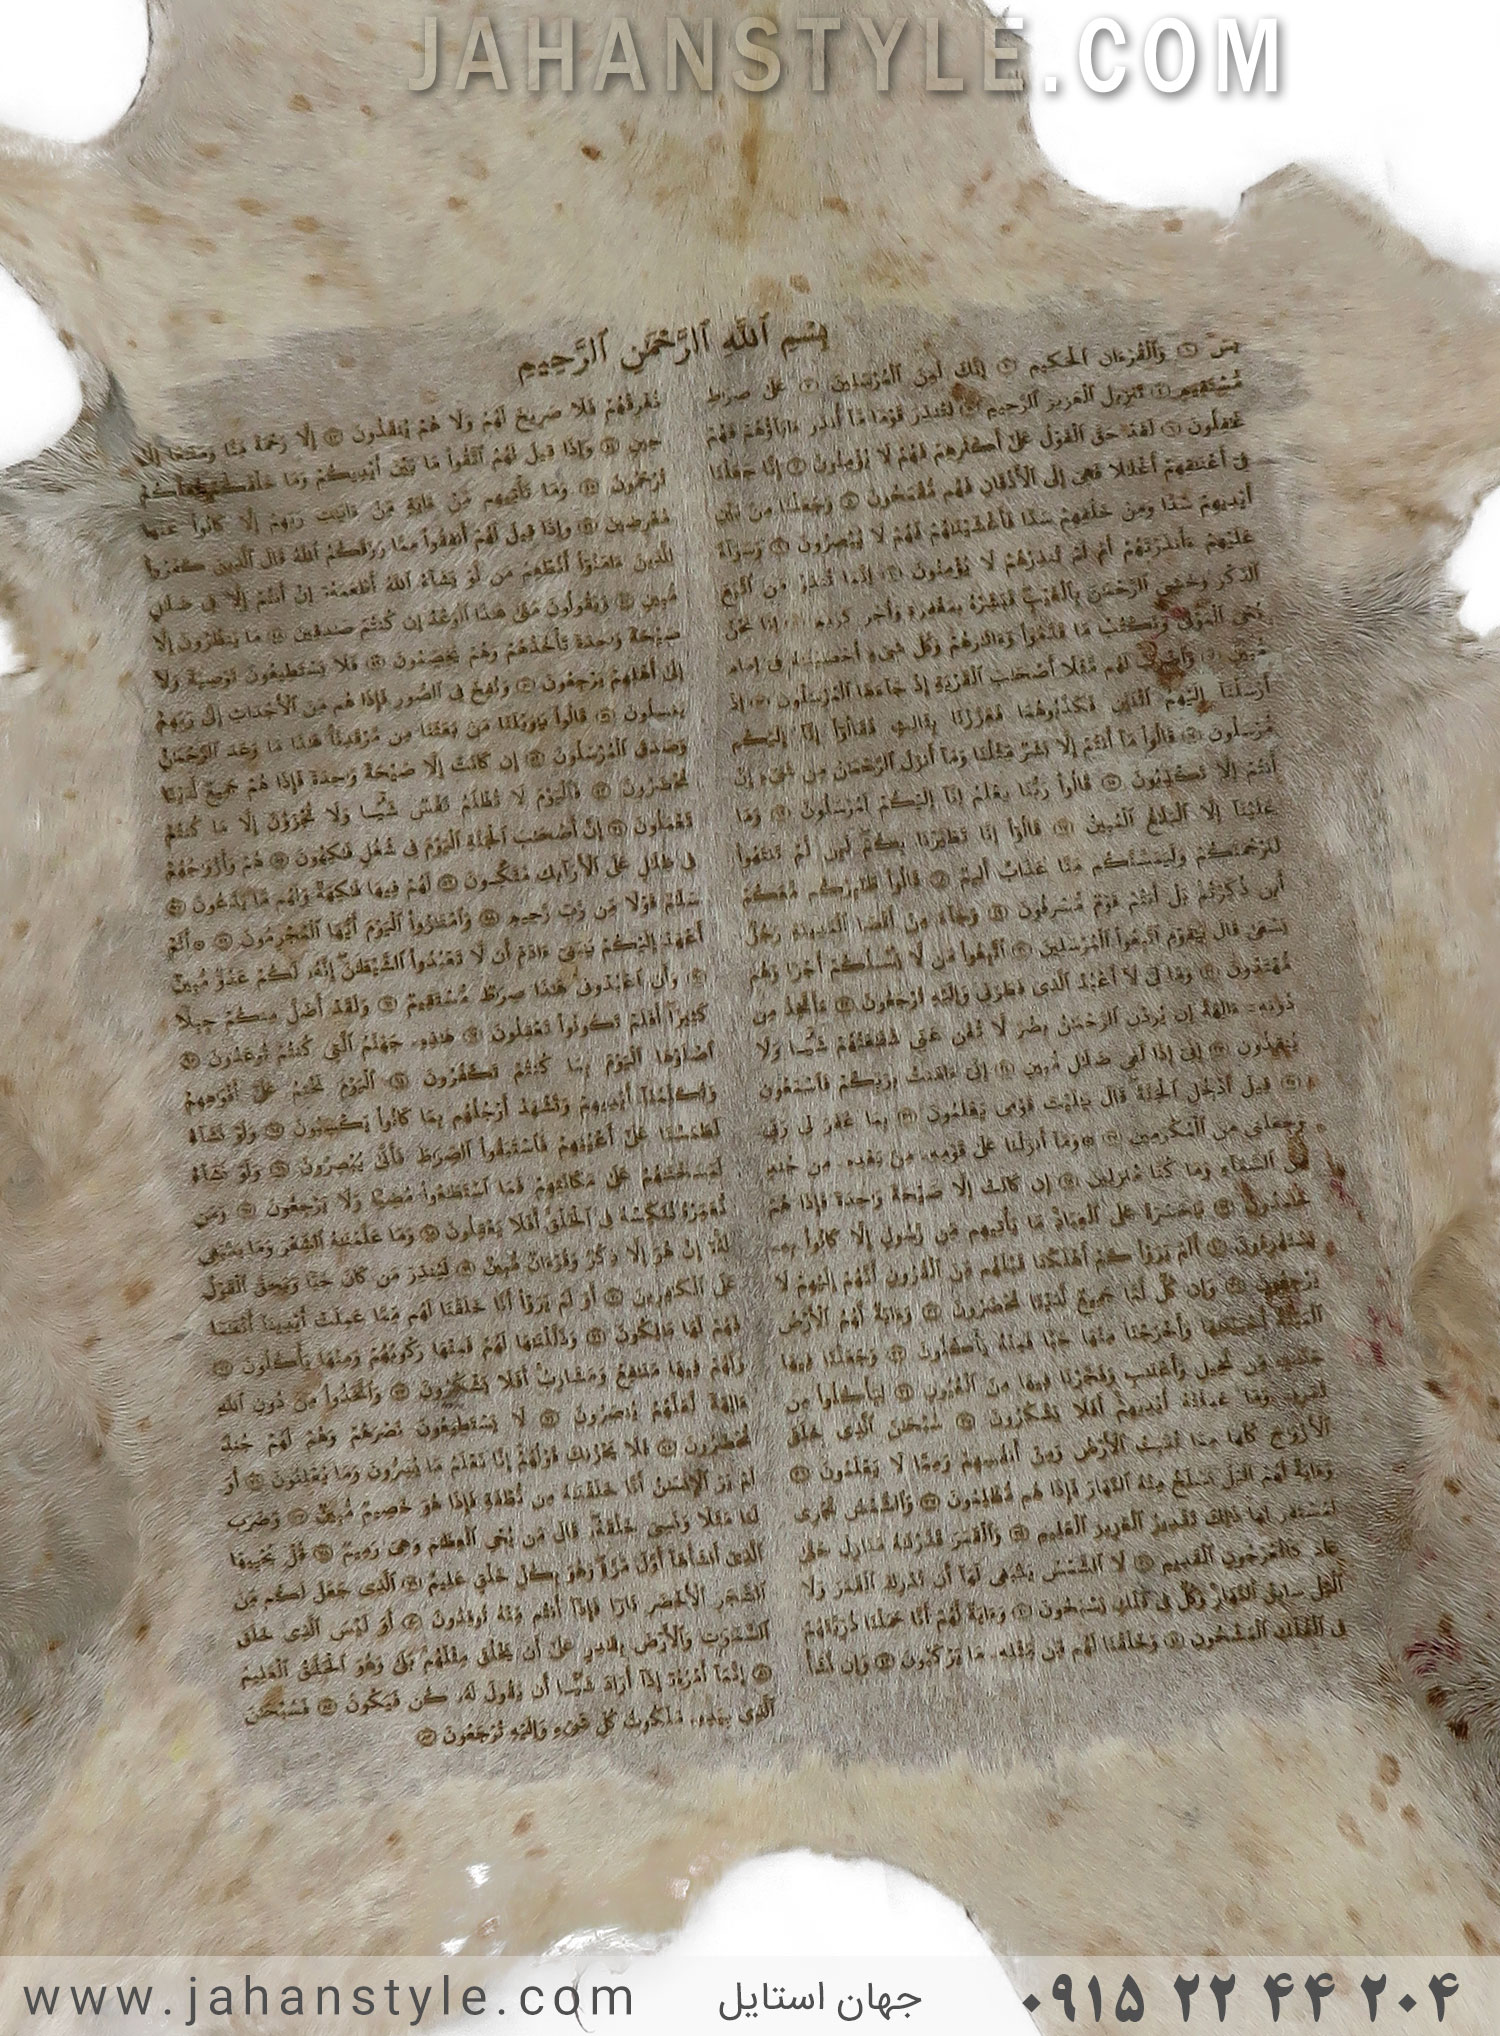 JAHANSTYLE.COM
بِسْمِ ٱللَّهِ ٱلرَّحْمَٰنِ ٱلرَّحِيمِ
يس ١ والقرءان الحكيم ٢ إنك لمن المرسلين ٣ على صرط
مستقيم ٤ تنزيل العزيز الرحيم ٥ لتنذر قوما ما أنذر ءاباؤهم فهم
غفلون ٦ لقد حق القول على أكثرهم فهم لا يؤمنون ٧ إنا جعلنا
في أعنقهم أغللا فهي إلى الأذقان فهم مقمحون ٨ وجعلنا من بين
أيديهم سدا ومن خلفهم سدا فأغشينهم فهم لا يبصرون ٩ وسواء
عليهم ءأنذرتهم أم لم تنذرهم لا يؤمنون ١٠ إنما تنذر من اتبع
الذكر وخشي الرحمن بالغيب فبشره بمغفرة وأجر كريم ١١ إنا نحن
نحي الموتى ونكتب ما قدموا وءاثرهم وكل شيء أحصينه في إمام
مبين ١٢ واضرب لهم مثلا أصحب القرية إذ جاءها المرسلون ١٣ إذ
أرسلنا إليهم اثنين فكذبوهما فعززنا بثالث فقالوا إنا إليكم
مرسلون ١٤ قالوا ما أنتم إلا بشر مثلنا وما أنزل الرحمن من شيء إن
أنتم إلا تكذبون ١٥ قالوا ربنا يعلم إنا إليكم لمرسلون ١٦ وما
علينا إلا البلغ المبين ١٧ قالوا إنا تطيرنا بكم لئن لم تنتهوا
لنرجمنكم وليمسنكم منا عذاب أليم ١٨ قالوا طئركم معكم
أئن ذكرتم بل أنتم قوم مسرفون ١٩ وجاء من أقصا المدينة رجل
يسعى قال يقوم اتبعوا المرسلين ٢٠ اتبعوا من لا يسألكم أجرا وهم
مهتدون ٢١ وما لي لا أعبد الذي فطرني وإليه ترجعون ٢٢ ءأتخذ من
دونه ءالهة إن يردن الرحمن بضر لا تغن عني شفعتهم شيا ولا
ينقذون ٢٣ إني إذا لفي ضلل مبين ٢٤ إني ءامنت بربكم فاسمعون
٢٥ قيل ادخل الجنة قال يليت قومي يعلمون ٢٦ بما غفر لي ربي
وجعلني من المكرمين ٢٧ وما أنزلنا على قومه من بعده من جند
من السماء وما كنا منزلين ٢٨ إن كانت إلا صيحة وحدة فإذا هم
خمدون ٢٩ يحسرة على العباد ما يأتيهم من رسول إلا كانوا به
يستهزءون ٣٠ ألم يروا كم أهلكنا قبلهم من القرون أنهم إليهم لا
يرجعون ٣١ وإن كل لما جميع لدينا محضرون ٣٢ وءاية لهم الأرض
الميتة أحيينها وأخرجنا منها حبا فمنه يأكلون ٣٣ وجعلنا فيها
جنت من نخيل وأعنب وفجرنا فيها من العيون ٣٤ ليأكلوا من
ثمره وما عملته أيديهم أفلا يشكرون ٣٥ سبحن الذي خلق
الأزوج كلها مما تنبت الأرض ومن أنفسهم ومما لا يعلمون ٣٦
وءاية لهم اليل نسلخ منه النهار فإذا هم مظلمون ٣٧ والشمس تجري
لمستقر لها ذلك تقدير العزيز العليم ٣٨ والقمر قدرنه منازل حتى
عاد كالعرجون القديم ٣٩ لا الشمس ينبغي لها أن تدرك القمر ولا
اليل سابق النهار وكل في فلك يسبحون ٤٠ وءاية لهم أنا حملنا ذريتهم
في الفلك المشحون ٤١ وخلقنا لهم من مثله ما يركبون ٤٢ وإن نشأ
نغرقهم فلا صريخ لهم ولا هم ينقذون ٤٣ إلا رحمة منا ومتعا إلى
حين ٤٤ وإذا قيل لهم اتقوا ما بين أيديكم وما خلفكم لعلكم
ترحمون ٤٥ وما تأتيهم من ءاية من ءايت ربهم إلا كانوا عنها
معرضين ٤٦ وإذا قيل لهم أنفقوا مما رزقكم الله قال الذين كفروا
للذين ءامنوا أنطعم من لو يشاء الله أطعمه إن أنتم إلا في ضلل
مبين ٤٧ ويقولون متى هذا الوعد إن كنتم صدقين ٤٨ ما ينظرون إلا
صيحة وحدة تأخذهم وهم يخصمون ٤٩ فلا يستطيعون توصية ولا
إلى أهلهم يرجعون ٥٠ ونفخ في الصور فإذا هم من الأجداث إلى ربهم
ينسلون ٥١ قالوا يويلنا من بعثنا من مرقدنا هذا ما وعد الرحمن
وصدق المرسلون ٥٢ إن كانت إلا صيحة وحدة فإذا هم جميع لدينا
محضرون ٥٣ فاليوم لا تظلم نفس شيا ولا تجزون إلا ما كنتم
تعملون ٥٤ إن أصحب الجنة اليوم في شغل فكهون ٥٥ هم وأزوجهم
في ظلل على الأرائك متكون ٥٦ لهم فيها فكهة ولهم ما يدعون ٥٧
سلم قولا من رب رحيم ٥٨ وامتزوا اليوم أيها المجرمون ٥٩ ۞ ألم
أعهد إليكم يبني ءادم أن لا تعبدوا الشيطن إنه لكم عدو مبين
٦٠ وأن اعبدوني هذا صرط مستقيم ٦١ ولقد أضل منكم جبلا
كثيرا أفلم تكونوا تعقلون ٦٢ هذه جهنم التي كنتم توعدون ٦٣
اصلوها اليوم بما كنتم تكفرون ٦٤ اليوم نختم على أفوههم
وتكلمنا أيديهم وتشهد أرجلهم بما كانوا يكسبون ٦٥ ولو نشاء
لطمسنا على أعينهم فاستبقوا الصرط فأنى يبصرون ٦٦ ولو نشاء
لمسخنهم على مكانتهم فما استطعوا مضيا ولا يرجعون ٦٧ ومن
نعمره ننكسه في الخلق أفلا يعقلون ٦٨ وما علمنه الشعر وما ينبغي
له إن هو إلا ذكر وقرءان مبين ٦٩ لينذر من كان حيا ويحق القول
على الكفرين ٧٠ أو لم يروا أنا خلقنا لهم مما عملت أيدينا أنعما
فهم لها ملكون ٧١ وذللنها لهم فمنها ركوبهم ومنها يأكلون ٧٢
ولهم فيها منفع ومشارب أفلا يشكرون ٧٣ واتخذوا من دون الله
ءالهة لعلهم ينصرون ٧٤ لا يستطيعون نصرهم وهم لهم جند
محضرون ٧٥ فلا يحزنك قولهم إنا نعلم ما يسرون وما يعلنون ٧٦ أو
لم ير الإنسن أنا خلقنه من نطفة فإذا هو خصيم مبين ٧٧ وضرب
لنا مثلا ونسي خلقه قال من يحي العظم وهي رميم ٧٨ قل يحييها
الذي أنشأها أول مرة وهو بكل خلق عليم ٧٩ الذي جعل لكم من
الشجر الأخضر نارا فإذا أنتم منه توقدون ٨٠ أو ليس الذي خلق
السموت والأرض بقدر على أن يخلق مثلهم بلى وهو الخلق العليم
٨١ إنما أمره إذا أراد شيا أن يقول له كن فيكون ٨٢ فسبحن
الذي بيده ملكوت كل شيء وإليه ترجعون ٨٣
www.jahanstyle.com جهان استایل ۰۹۱۵ ۲۲ ۴۴ ۲۰۴